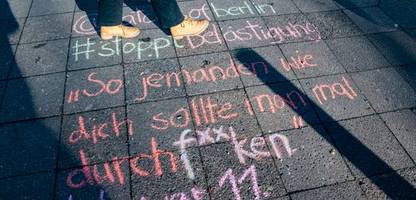 berlin
#stop Belästigung
„So jemanden wie
dich sollte man mal
durch fxxi
ken"